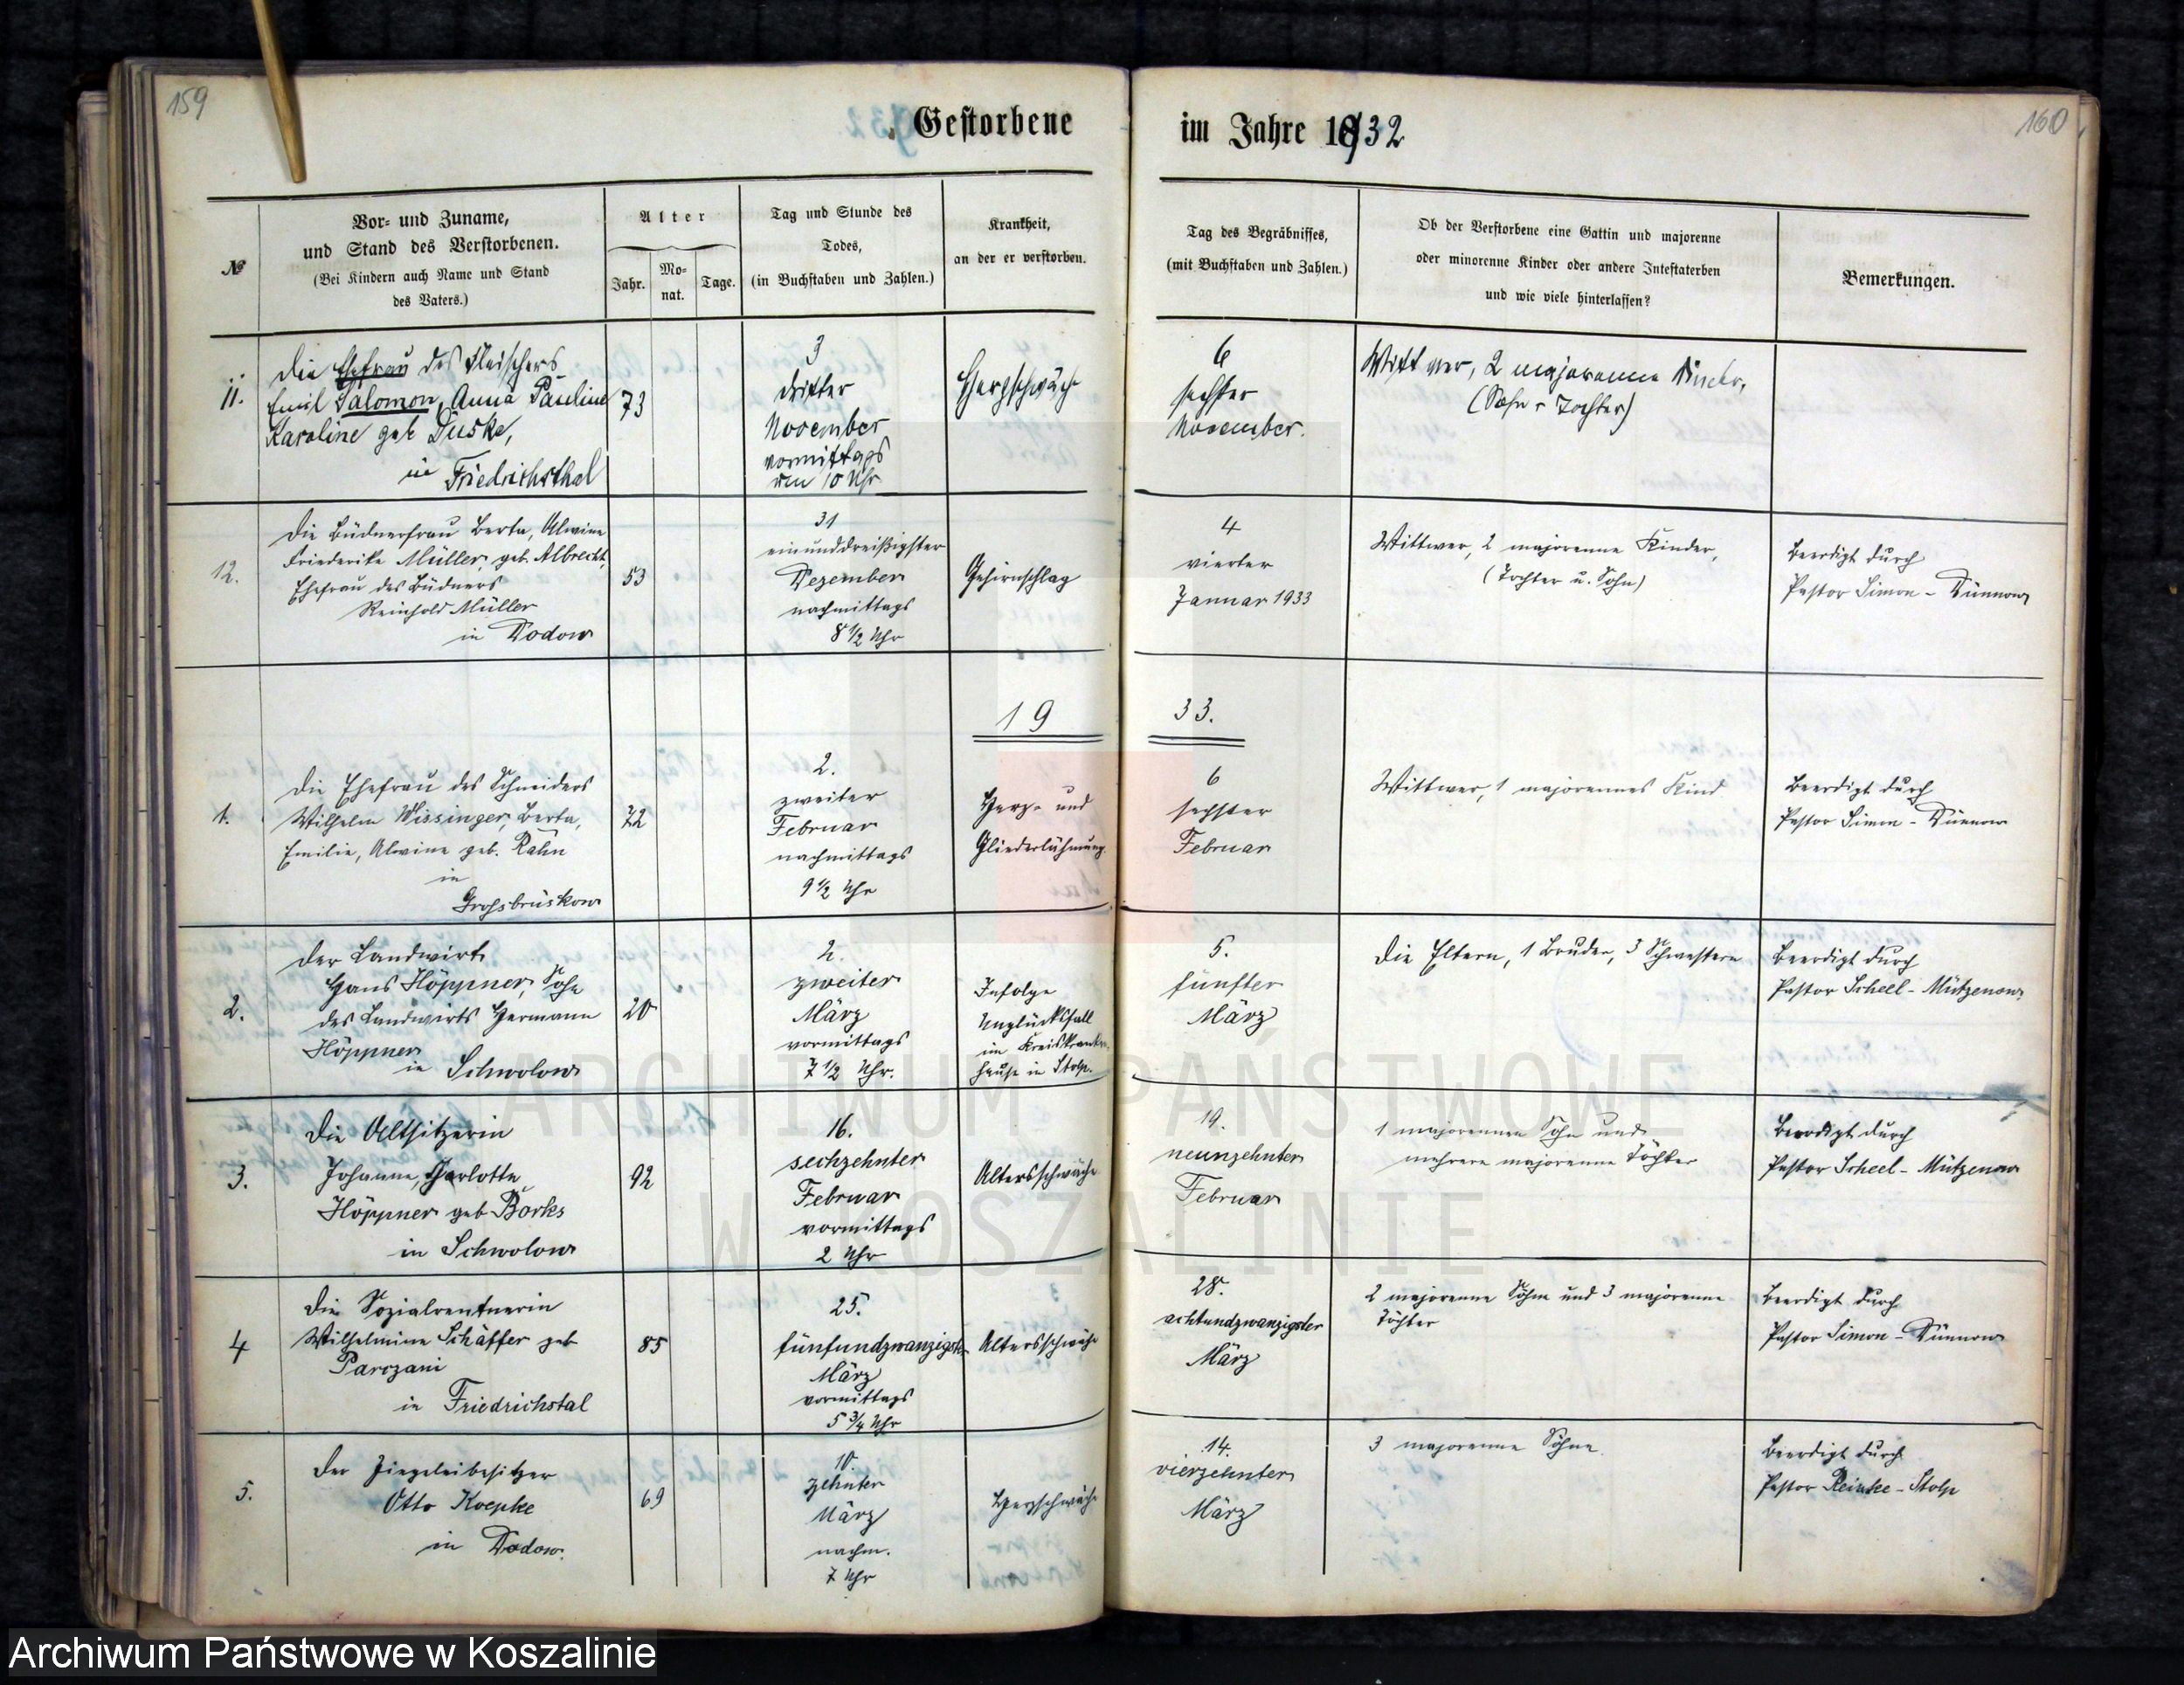 159
Gestorbene
im Jahre 1932
160
№
Vor- und Zuname,
und Stand des Verstorbenen.
(Bei Kindern auch Name und Stand
des Vaters.)
Alter
Jahr.
Mo-
nat.
Tage.
Tag und Stunde des
Todes,
(in Buchstaben und Zahlen.)
Krankheit,
an der er verstorben.
Tag des Begräbnisses,
(mit Buchstaben und Zahlen.)
Ob der Verstorbene eine Gattin und majorenne
oder minorenne Kinder oder andere Intestaterben
und wie viele hinterlassen?
Bemerkungen.
11.
Die Ehefrau des Fleischers
Emil Salomon, Anna Pauline
Karoline geb Duske,
in Friedrichsthal
73
3
dritter
November
vormittags
um 10 Uhr
Herzschwäche
6
sechster
November.
Wittwer, 2 majorenne Kinder,
(Sohn u Tochter)
12.
Die Büdnerfrau Berta, Alwine
Friederike Müller, geb. Albrecht,
Ehefrau des Büdners
Reinhold Müller
in Dodow
53
31
einunddreißigster
Dezember
nachmittags
8 1/2 Uhr
Gehirnschlag
4
vierter
Januar 1933
Wittwer, 2 majorenne Kinder,
(Tochter u. Sohn)
Beerdigt durch
Pastor Simon - Dünnow
19 33.
1.
Die Ehefrau des Schneiders
Wilhelm Wissinger, Berta,
Emilie, Alwine geb. Rahn
in
Grossbrüskow
72
2.
zweiter
Februar
nachmittags
9 1/2 Uhr
Herz- und
Gliederlähmung
6
sechster
Februar
Wittwer, 1 majorennes Kind
Beerdigt durch
Pastor Simon - Dünnow
2.
Der Landwirt
Hans Höppner, Sohn
des Landwirts Hermann
Höppner
in Schwolow
20
2.
zweiter
März
vormittags
7 1/2 Uhr.
Infolge
Unglücksfall
im Kreiskranken-
hause in Stolp.
5.
fünfter
März
Die Eltern, 1 Bruder, 3 Schwestern
Beerdigt durch
Pastor Scheel - Mützenow
3.
Die Altsitzerin
Johanne, Charlotte
Höppner geb Borks
in Schwolow
92
16.
sechzehnter
Februar
vormittags
2 Uhr
Altersschwäche
19.
neunzehnter
Februar
1 majorennen Sohn und
mehrere majorenne Töchter
Beerdigt durch
Pastor Scheel - Mützenow
4
Die Sozialrentnerin
Wilhelmine Schäffer geb
Parczani
in Friedrichstal
85
25.
fünfundzwanzigster
März
vormittags
5 3/4 Uhr
Altersschwäche
28.
achtundzwanzigster
März
2 majorenne Söhne und 3 majorenne
Töchter
Beerdigt durch
Pastor Simon - Dünnow
5.
Der Ziegeleibesitzer
Otto Koepke
in Dodow.
69
10.
zehnter
März
nachm.
7 Uhr
Herzschwäche
14.
vierzehnter
März
3 majorenne Söhne
Beerdigt durch
Pastor Reinke - Stolp
ARCHIWUM PAŃSTWOWE
W KOSZALINIE
Archiwum Państwowe w Koszalinie